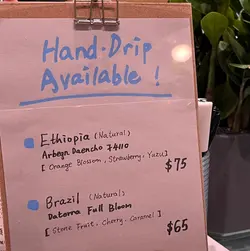 Hand-Drip
Available !
Ethiopia (Natural)
Arbegn Daencho 74110
[ Orange Blossom, Strawberry, Yuzu]
$75
Brazil (Natural)
Daterra Full Bloom
[ Stone Fruit, Cherry, Caramel ]
$65